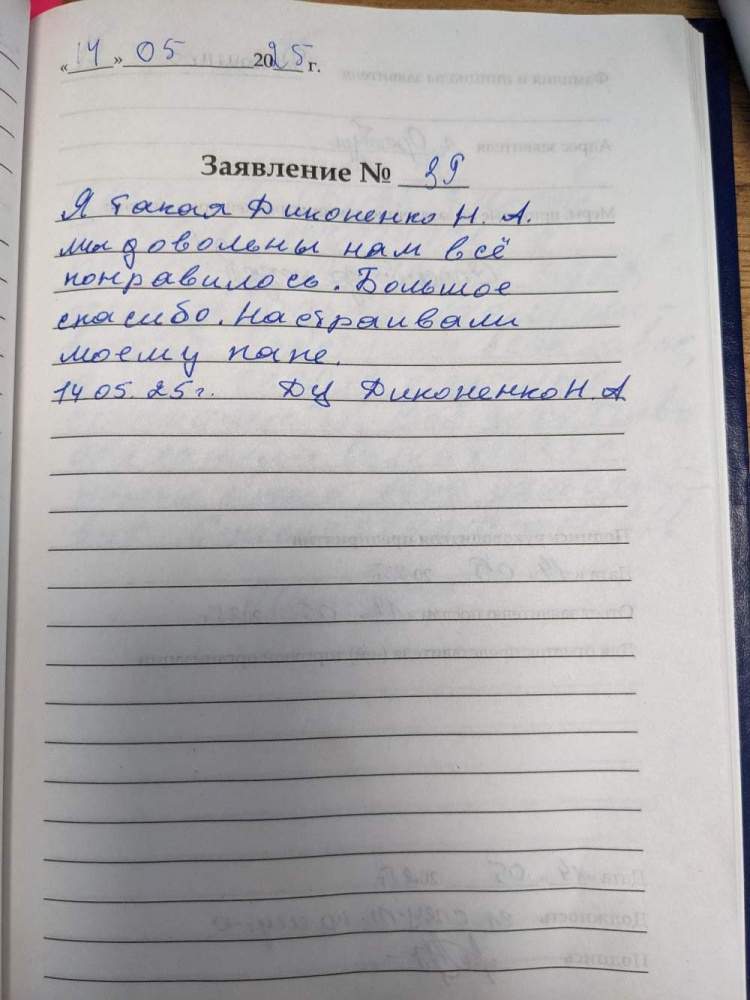 «14» 05 2025 г.
Заявление № 39
Я такая Диконенко Н. А.
мы довольны нам всё
понравилось. Большое
спасибо. Настраивали
моему папе.
14 05. 25 г. ДЦ Диконенко Н. А